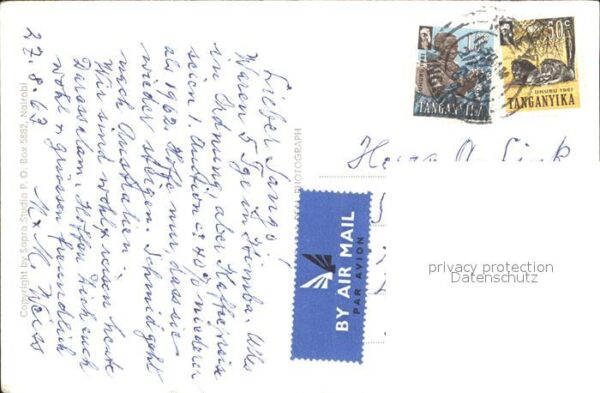 27.8.63
Lieber Sanso!
Waren 5 Tge in Himba. Alles
in Ordnung, aber Kaffeepreise
seien 1. Auktion ca 40% niederer
als 1962. Hoffe nur, dass sie
wieder steigen. Schmid geht
nach Australien.
Wir sind wohl & reisen heute
Daressalam. Hoffen Dich auch
wohl & grüssen freundlich
M. & M. Weiss
Copyright by Sapra Studio P. O. Box 5882, Nairobi
PHOTOGRAPH
BY AIR MAIL
PAR AVION
UHURU 1961
TANGANYIKA
50 c
UHURU 1961
TANGANYIKA
Herrn A. Link
privacy protection
Datenschutz